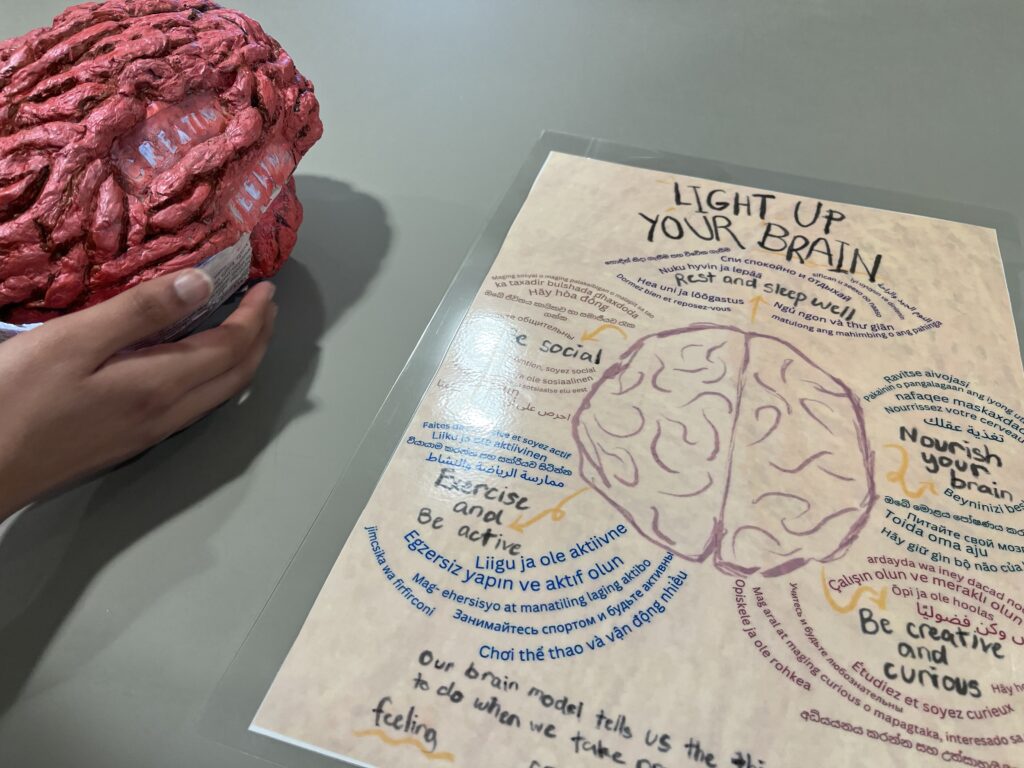 CREATIN
FEELING
LIGHT UP
YOUR BRAIN
Спи спокойно и отдыхай
Nuku hyvin ja lepää
Hea uni ja löögastus
Rest and sleep well
Dormez bien et reposez-vous
Ngủ ngon và thư giãn
matulong ang mahimbing o ang pahinga
ka taxadir bulshada dhaxdoda
Hãy hòa đồng
общительны
social
soyez social
ole sosiaalinen
احرص على
Faites de et soyez actif
Liiku ja ole aktiivinen
ව්‍යායාම කරන්න සහ සක්රීයව සිටින්න
ممارسة الرياضة والنشاط
Exercise
and
Be active
Liigu ja ole aktiivne
Egzersiz yapın ve aktıf olun
jimcsika wa firfirconi
Mag- ehersisyo at manatiling laging aktibo
Занимайтесь спортом и будьте активны
Chơi thể thao và vận động nhiều
Ravitse aivojasi
Pakainin o pangalagaan ang iyong
nafaqee maskaxdac
Nourrissez votre cerveau
تغذية عقلك
Nourish
your
brain
Beyninizi bes
Питайте свой мозг
Toida oma aju
Hãy giữ gìn bộ não của
ardayda wa iney dacad noq
Çalışın olun ve meraklı olun
Õpi ja ole hoolas
وكن فضوليًا
Be creative
and
curious
Hãy
Учитесь и будьте любознательны
Étudiez et soyez curieux
Mag aral at maging curious o mapagtaka, interesado sa
Opiskele ja ole rohkea
අධ්‍යයනය කරන්න සහ
Our brain model tells us the
to do when we take
feeling